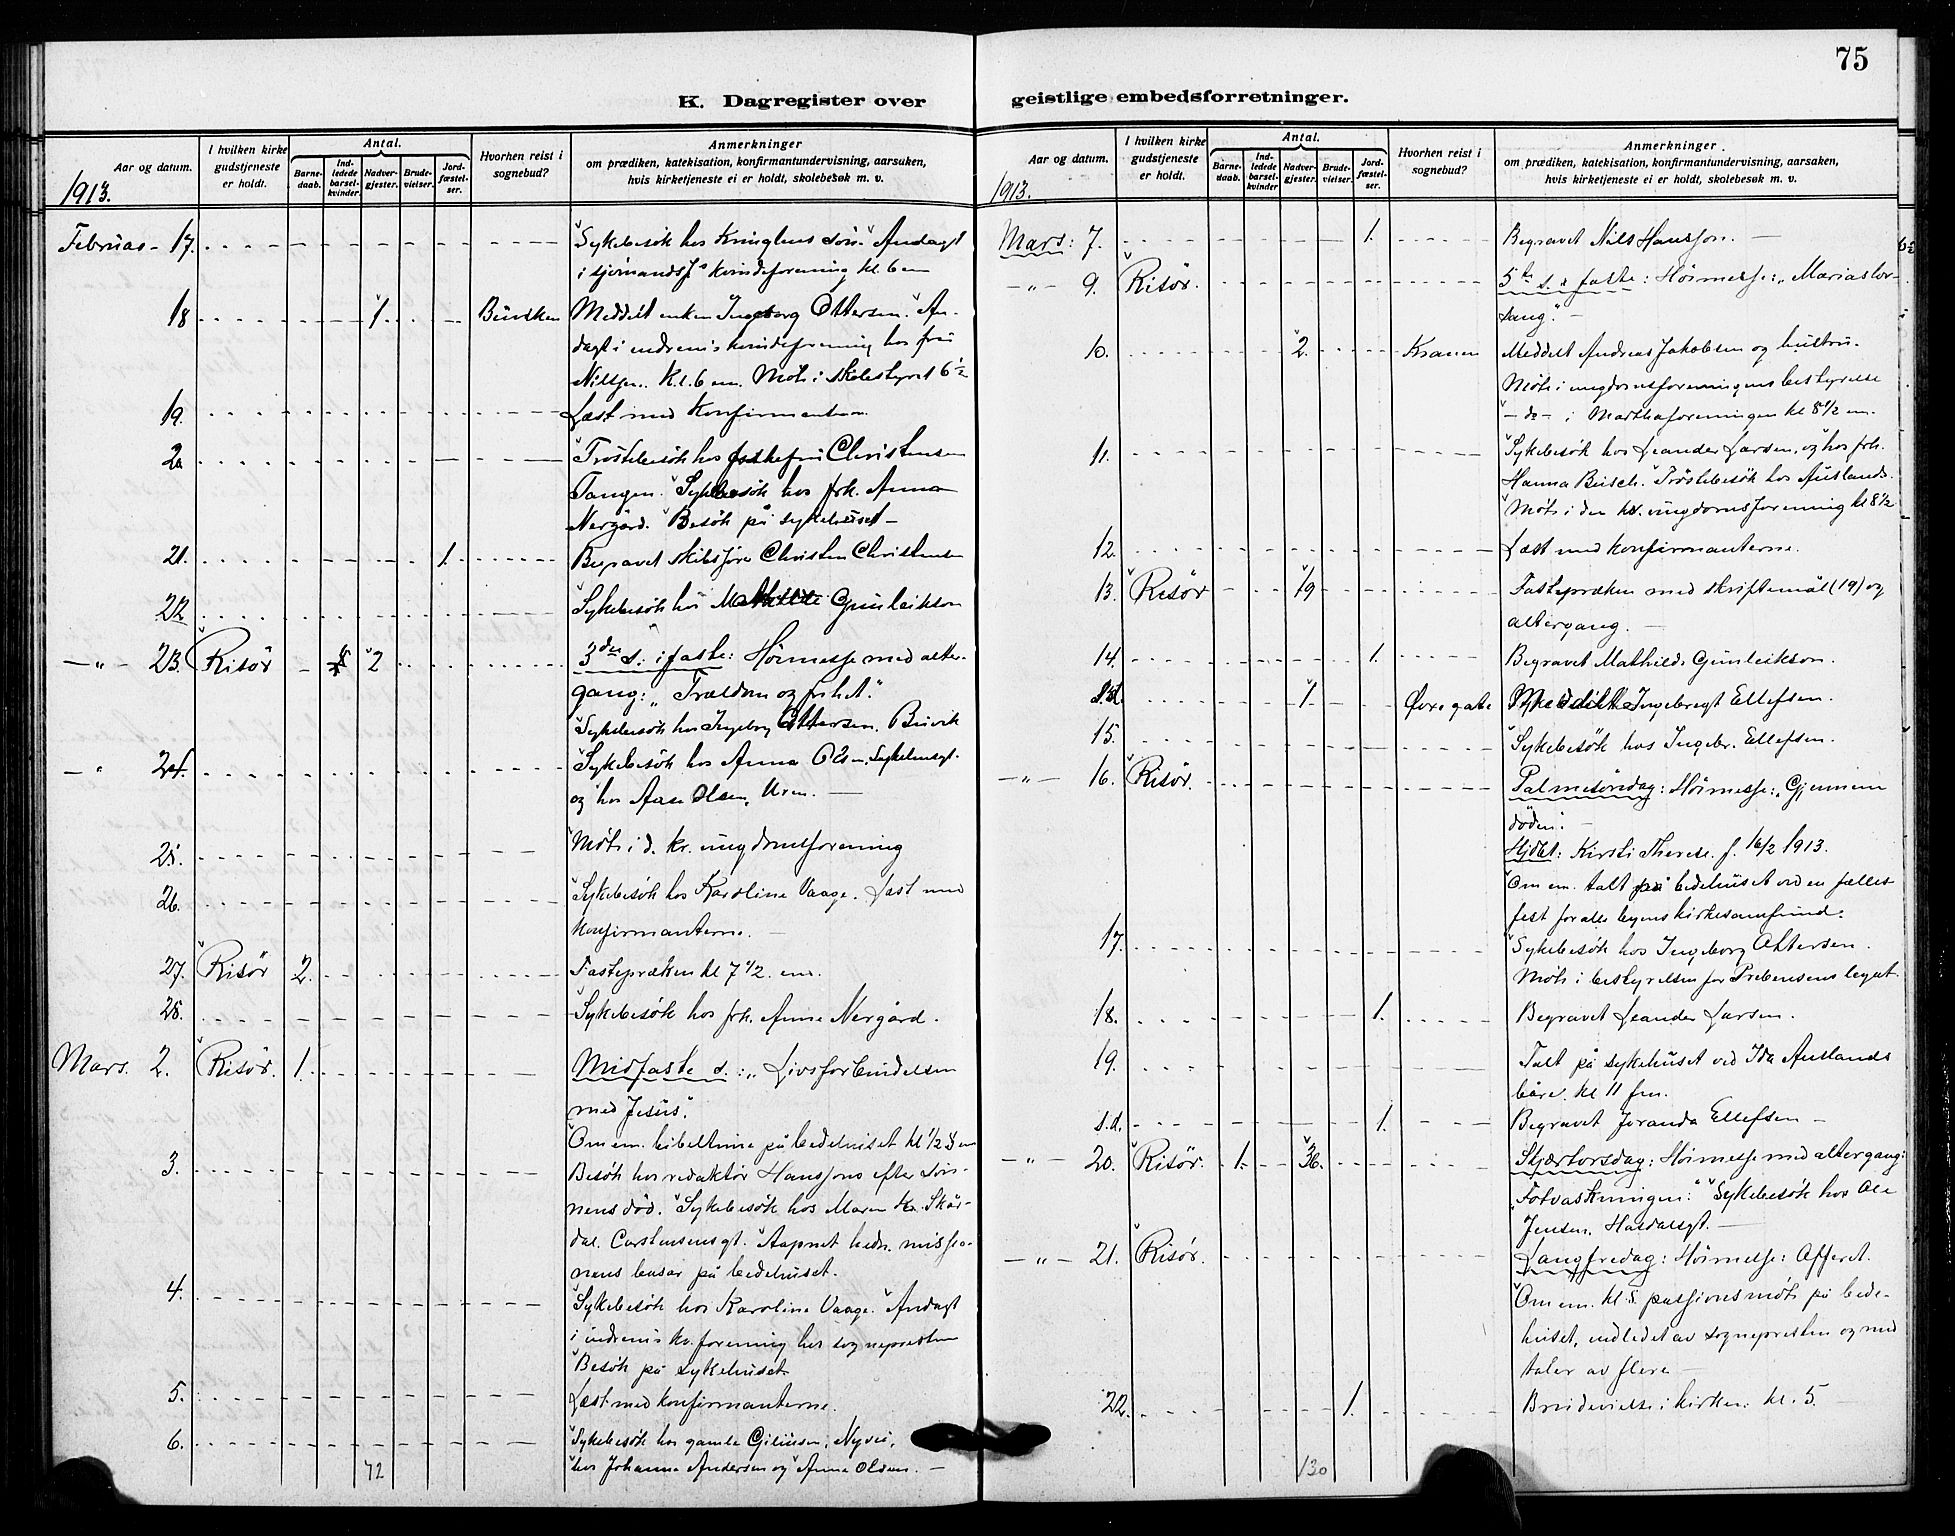 75
K. Dagregister over geistlige embedsforretninger.
Aar og datum.
I hvilken kirke gudstjeneste er holdt.
Antal.
Barnedaab.
Indledede barselkvinder
Nadvergjester.
Brudevielser.
Jordfæstelser.
Hvorhen reist i sognebud?
Anmerkninger
om prædiken, katekisation, konfirmantundervisning, aarsaken,
hvis kirketjeneste ei er holdt, skolebesøk m. v.
1913.
Februar - 17. Sykebesök hos Andagt
kvindeforening kl. 6 em
18 1. Meddelt enken Ingeborg Ottersen. An-
dagt i indremis kvindeforening hos fru
Nilsen. Kl. 6 em. Möte i skolestyret 6 1/2
19. Læst med Konfirmanterne
20 Tröstebesök hos Christensen
Tangen. Sykebesök hos frk. Anna
Nergård. Besök på sykehuset -
21. 1. Begravet skibsförer Christen Christensen
22 Sykebesök hos Mathilde Gunleikson
-"- 23. Risör 2 3die s. i faste: Höimesse med alter-
gang: "Trældom og frihet."
Sykebesök hos Ingeborg Ottersen, Buvik
-"- 24. Sykebesök hos Anna Olsen, Sykehusgt.
og hos Aase Olsen, Uren. -
25. Möte i d. kr. ungdomsforening
26. Sykebesök hos Karoline Vaage. Læst med
konfirmanterne. -
27. Risör 2. Fastepræken kl 7 1/2 em.
28. Sykebesök hos frk. Anna Nergård.
Mars. 2. Risör. 1. Midfaste s.: "Livsforbindelsen
med Jesus".
Om em. bibeltime på bedehuset kl
3. Besök hos redaktör Hanssons efter sön-
nens död. Sykebesök hos Maren Kr. Skår-
dal. Carstensensgt. Aapnet hedn. missio-
nens basar på bedehuset.
4. Sykebesök hos Karoline Vaage. Andagt
i indremis kv. forening hos sognepresten
Besök på sykehuset
5. Læst med konfirmanterne.
6. Sykebesök hos gamle Nyvei,
hos Johanne Andersen og Anna Olsen. -
72
Aar og datum.
I hvilken kirke gudstjeneste er holdt.
Antal.
Barnedaab.
Indledede barselkvinder
Nadvergjester.
Brudevielser.
Jordfæstelser.
Hvorhen reist i sognebud?
Anmerkninger.
om prædiken, katekisation, konfirmantundervisning, aarsaken,
hvis kirketjeneste ei er holdt, skolebesøk m. v.
1913.
Mars: 7. 1. Begravet Nils Hansson. -
-"- 9. Risör. 5te s. i faste: Höimesse: "Marias lov-
sang". -
10. 2. Kranen Meddelt Andreas Jakobsen og hustru.
Möte i ungdomsforeningens bestyrelse
- do - i Marthaforeningen kl 8 1/2 em.
11. Sykebesök hos Leander Larsen, og hos frk.
Hanna Busch. Tröstebesök hos Auslands.
Möte i den kr. ungdomsforening kl 8 1/2
12. Læst med konfirmanterne.
13. Risör 19 Fastepræken med skriftemål (19) og
altergang. -
14. 1. Begravet Mathilde Gunleikson.
s.d. 1. Övregate Meddelt Ingebregt Ellefsen.
15. Sykebesök hos Ingebr. Ellefsen.
-"- 16. Risör. Palmesöndag: Höimesse: "Gjennem
döden".
Hjdbt: Kirsti Therese. f. 16/2 1913.
Om em. talt på bedehuset ved en fælles
fest for alle byens kirkesamfund.
17. Sykebesök hos Ingeborg Ottersen.
Möte i bestyrelsen for Prebensens legat.
18. 1. Begravet Leander Larsen.
19. Talt på sykehuset ved Ida Auslands
båre. kl 11 fm.
s.d. 1. Begravet Joranda Ellefsen -
-"- 20. Risör. 1. 36. Skjærtorsdag: Höimesse med altergang:
"Fotvaskningen." Sykebesök hos Ole
Jensen, Hasdalsgt. -
-"- 21. Risör. Langfredag: Höimesse: Offeret.
Om em. kl 5. passionsmöte på bede-
huset, indledet av sognepresten og med
taler av flere -
22. 1. Brudevielse i kirken. kl. 5. -
130